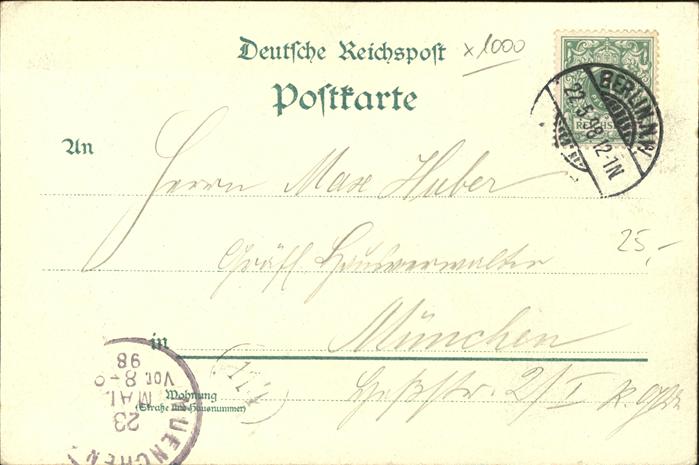 Deutsche Reichspost
x 1000
Postkarte
REICHSP
BERLIN. N.W.
22.5.98. 12-1N
An
Herrn Max Huber
25,-
Gräfl Hausverwalter
in
München
Wohnung
(Straße und Hausnummer)
Heßstr. 2/I
MUENCHEN
23
MAI
Vor. 8-9
98